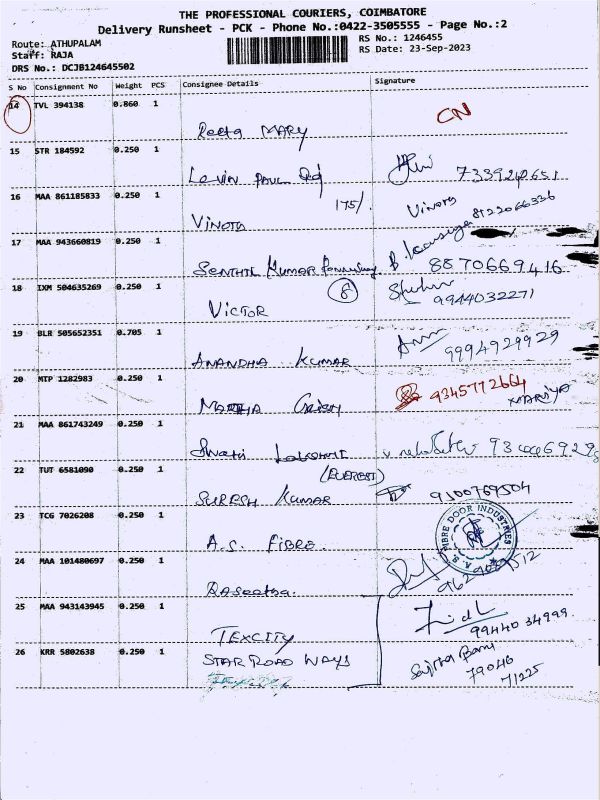 THE PROFESSIONAL COURIERS, COIMBATORE
Delivery Runsheet - PCK - Phone No.:0422-3505555 - Page No.:2
Route: ATHUPALAM
RS No.: 1246455
Staff: RAJA
RS Date: 23-Sep-2023
DRS No.: DCJB124645502
S No Consignment No Weight PCS Consignee Details Signature
14 TVL 394138 0.860 1
CN
MARY
15 STR 184592 0.250 1
Levin Paul Rd
16 MAA 861185833 0.250 1
175/.
Vinota
8122066336
17 MAA 943660819 0.250 1
Senthil Kumar
8870669416
18 IXM 504635269 0.250 1
8
9944032271
Victor
19 BLR 505652351 0.705 1
9994929929
Anandha Kumar
20 MTP 1282983 0.250 1
9345772664
Mariya
Martha
21 MAA 861743249 0.250 1
Swati
22 TUT 6581090 0.250 1
(Everest)
9100769504
Suresh Kumar
23 TCG 7026208 0.250 1
A.S. FIBRE DOOR INDUSTRIES
A.S. Fibre
24 MAA 101480697 0.250 1
25 MAA 943143945 0.250 1
99440 34999
Texcity
26 KRR 5802638 0.250 1
Star Road Ways
79046
71225